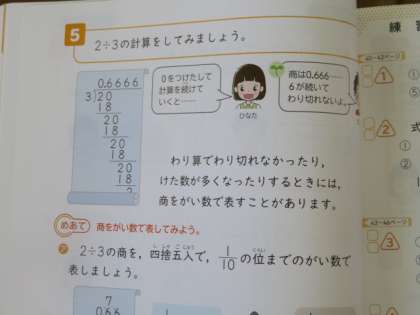 5
2÷3の計算をしてみましょう。
0.6666
3)20
18
20
18
20
18
20
18
2
0をつけたして
計算を続けて
いくと……
ひなた
商は0.666……
6が続いて
わり切れないよ。
わり算でわり切れなかったり，
けた数が多くなったりするときには，
商をがい数で表すことがあります。
めあて 商をがい数で表してみよう。
ア 2÷3の商を，四捨五入で，1/10の位までのがい数で
ししゃごにゅう
表しましょう。
7
0.66
練習
1
①
⑤
2
式
①
②
3
①